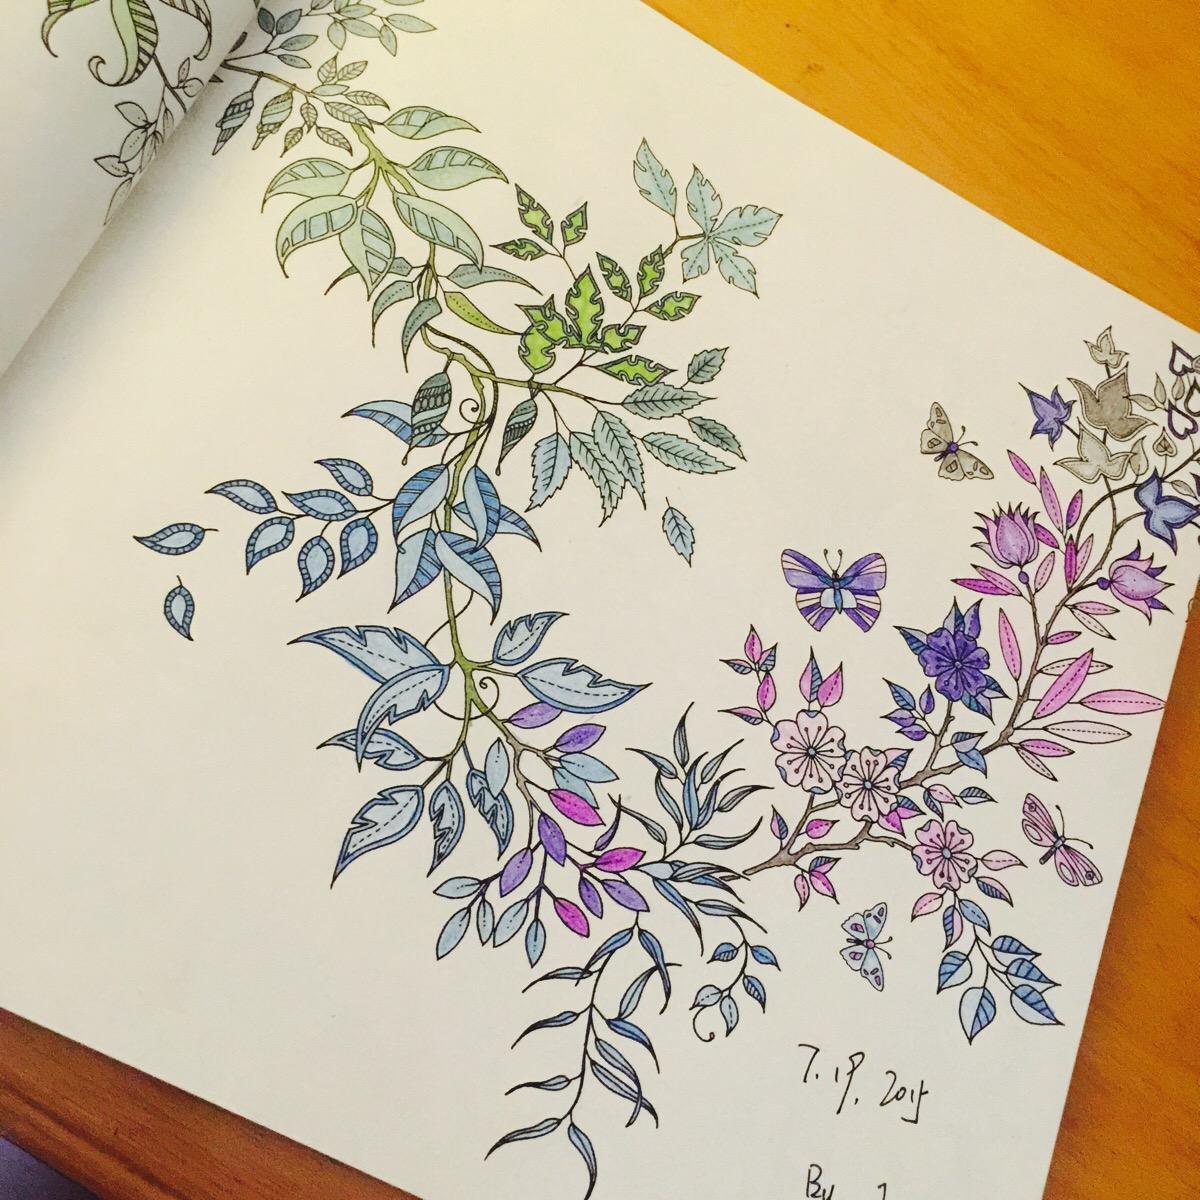 7.19.2015
By